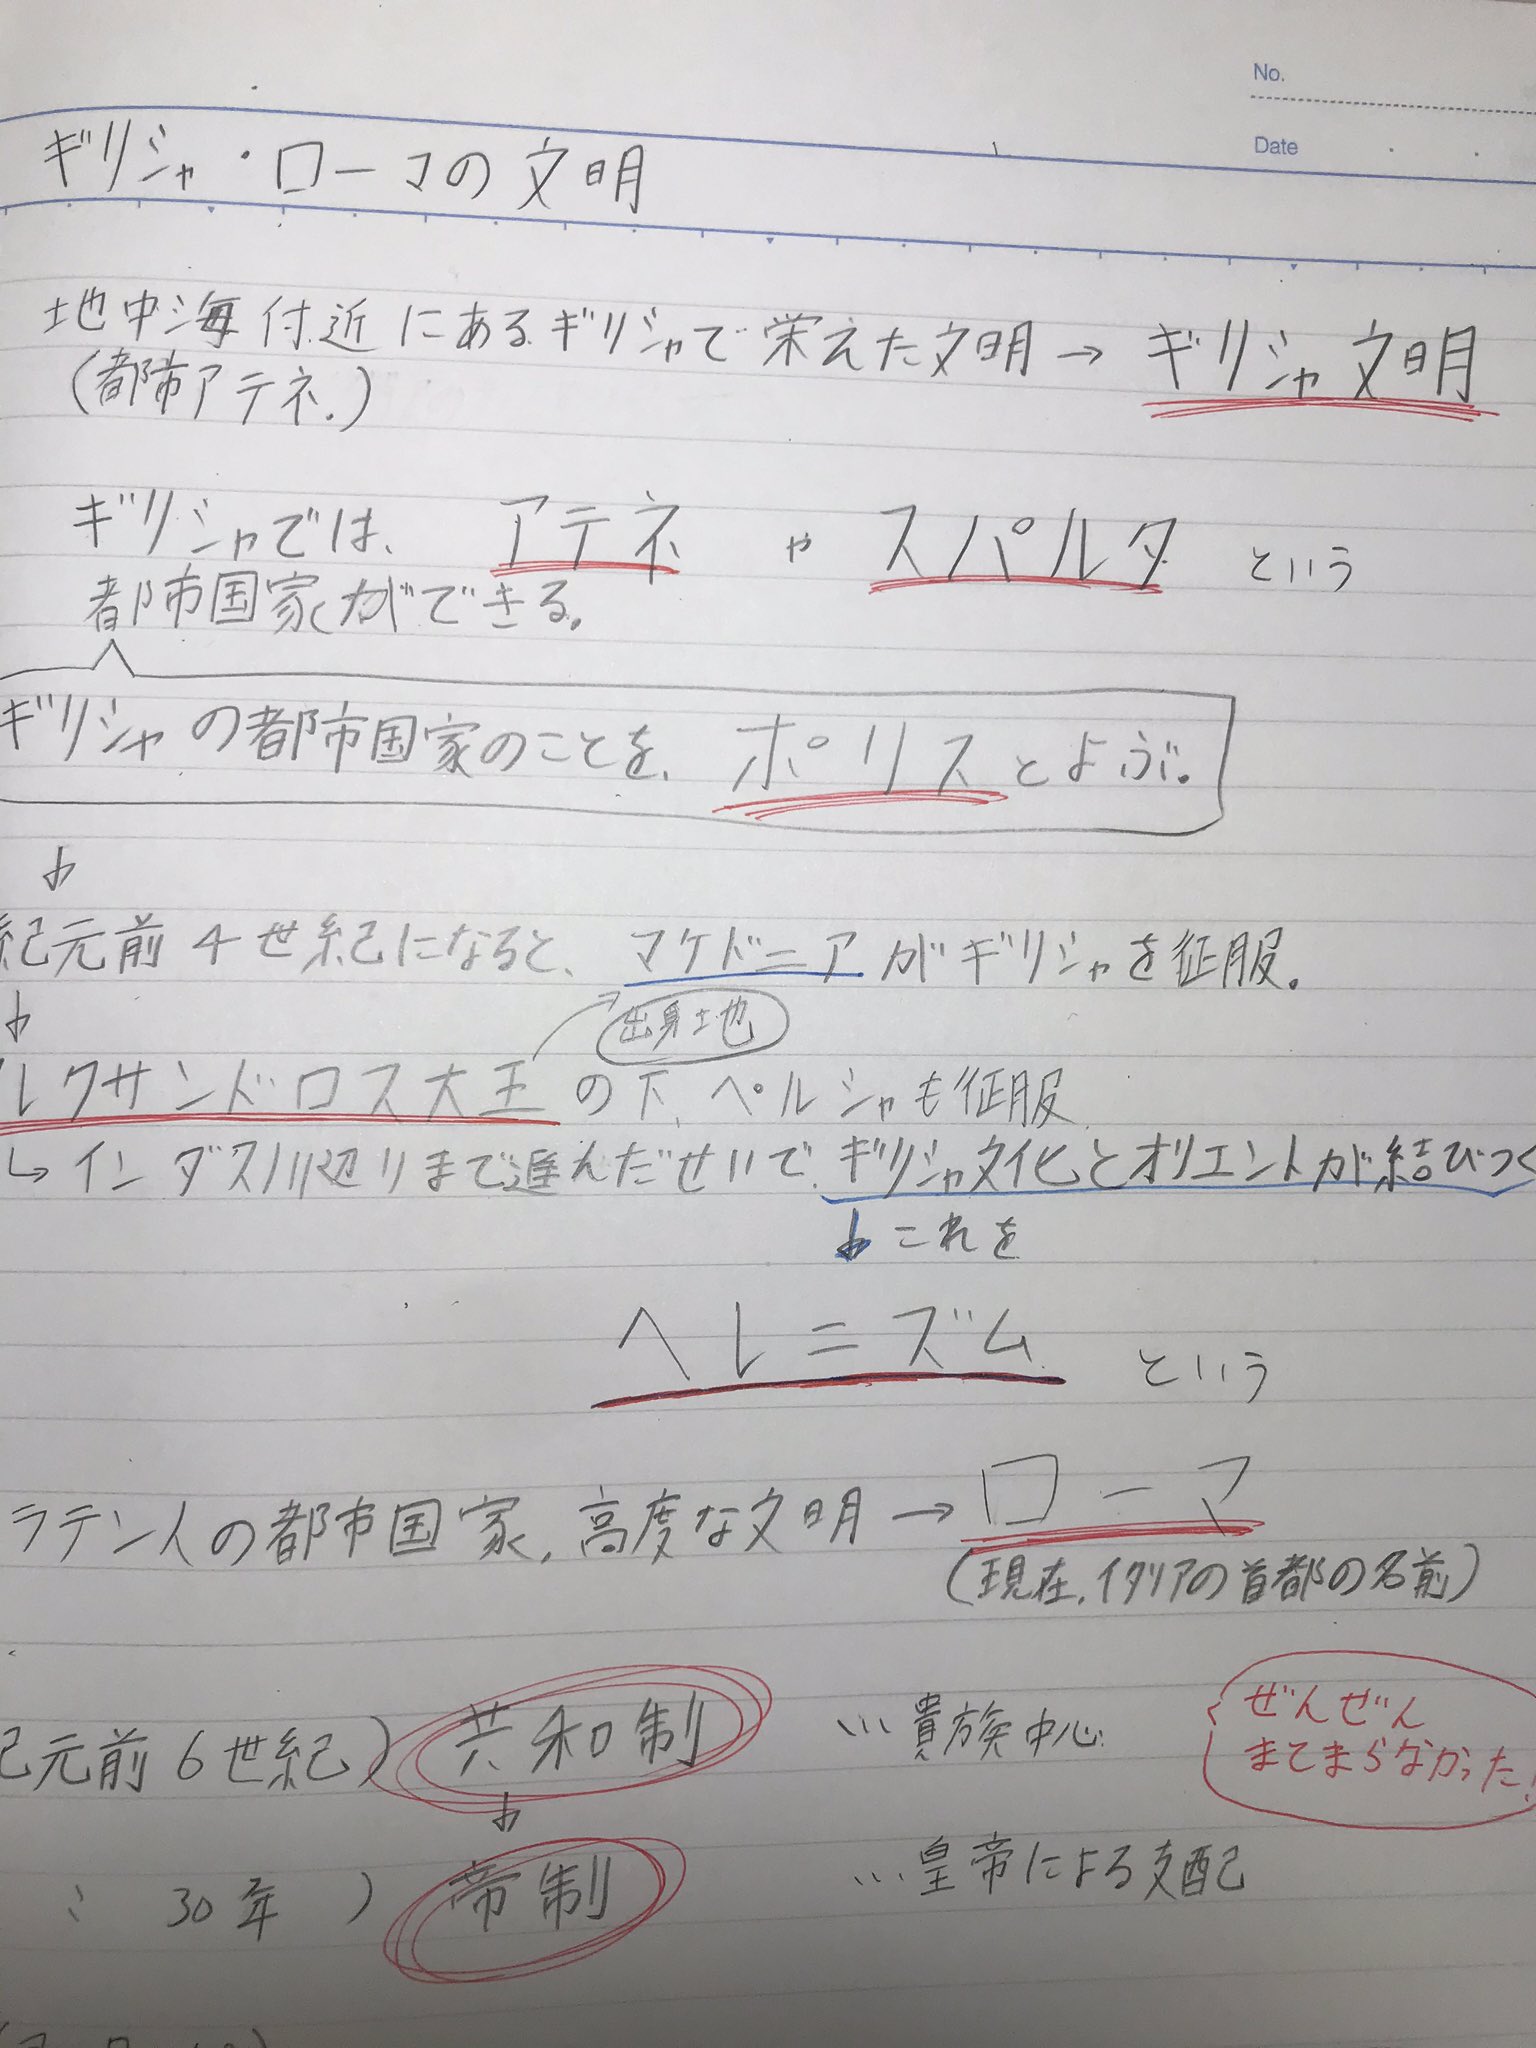 No.
Date
ギリシャ・ローマの文明
地中海付近にあるギリシャで栄えた文明→ギリシャ文明
(都市アテネ.)
ギリシャでは、アテネやスパルタという
都市国家ができる。
ギリシャの都市国家のことを、ポリスとよぶ。
↓
紀元前4世紀になると、マケドニアがギリシャを征服。
↓
出身地
レクサンドロス大王の下、ペルシャも征服
↳インダス川辺りまで進んだせいで、ギリシャ文化とオリエントが結びつく
↓これを
ヘレニズムという
ラテン人の都市国家、高度な文明→ローマ
(現在、イタリアの首都の名前)
紀元前6世紀)共和制 …貴族中心
ぜんぜん
まてまらなかった!
↓
〃 30年)帝制 …皇帝による支配